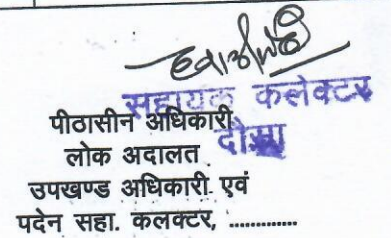 सहायक कलेक्टर
पीठासीन अधिकारी
लोक अदालत दौसा
उपखण्ड अधिकारी एवं
पदेन सहा. कलक्टर, .............